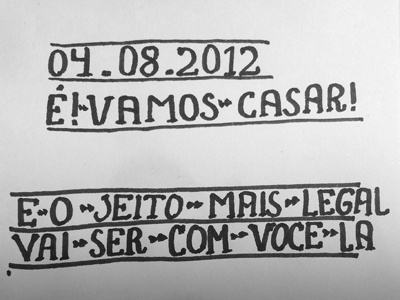 04.08.2012
É! VAMOS CASAR!
E O JEITO MAIS LEGAL
VAI SER COM VOCE LA